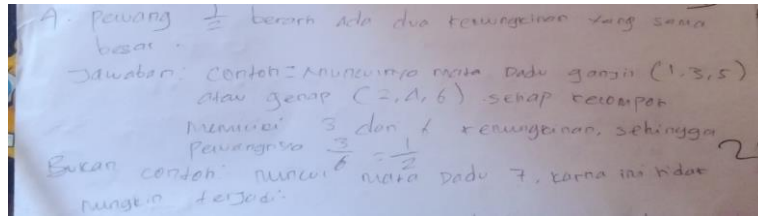 A. Peluang 1/2 berarti Ada dua kemungkinan yang sama
besar.
Jawaban: contoh = Munculnya mata Dadu ganjil (1,3,5)
atau genap (2,4,6). setiap kelompok
memiliki 3 dari 6 kemungkinan, sehingga
Peluangnya 3/6 = 1/2
2
Bukan contoh: muncul mata Dadu 7, karna ini tidak
mungkin terjadi.